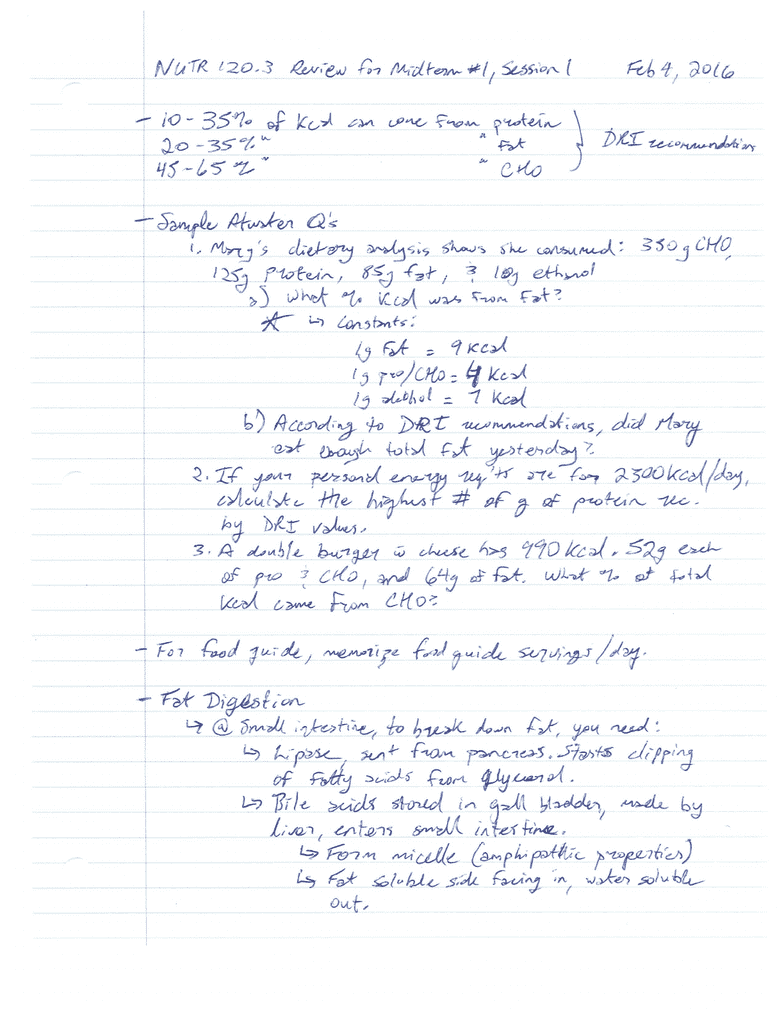 NUTR 120.3 Review for Midterm #1, Session 1 Feb 4, 2016
- 10-35% of Kcal can come from protein
20-35% " " fat } DRI recommendations
45-65% " " CHO
- Sample Atwater Q's
1. Mary's dietary analysis shows she consumed: 350g CHO,
125g protein, 85g fat, & 10g ethanol
a) What % Kcal was from fat?
★ ↳ Constants:
1g Fat = 9 Kcal
1g pro/CHO = 4 Kcal
1g alcohol = 7 Kcal
b) According to DRI recommendations, did Mary
eat enough total fat yesterday?
2. If your personal energy req'ts are for 2300 Kcal/day,
calculate the highest # of g of protein rec.
by DRI values.
3. A double burger w cheese has 990 Kcal. 52g each
of pro & CHO, and 64g of fat. What % of total
Kcal came from CHO?
- For food guide, memorize food guide servings/day.
- Fat Digestion
↳ @ Small intestine, to break down fat, you need:
↳ Lipase, sent from pancreas. Starts clipping
of fatty acids from glycerol.
↳ Bile acids stored in gall bladder, made by
liver, enters small intestine.
↳ Form micelle (amphipathic properties)
↳ Fat soluble side facing in, water soluble
out.